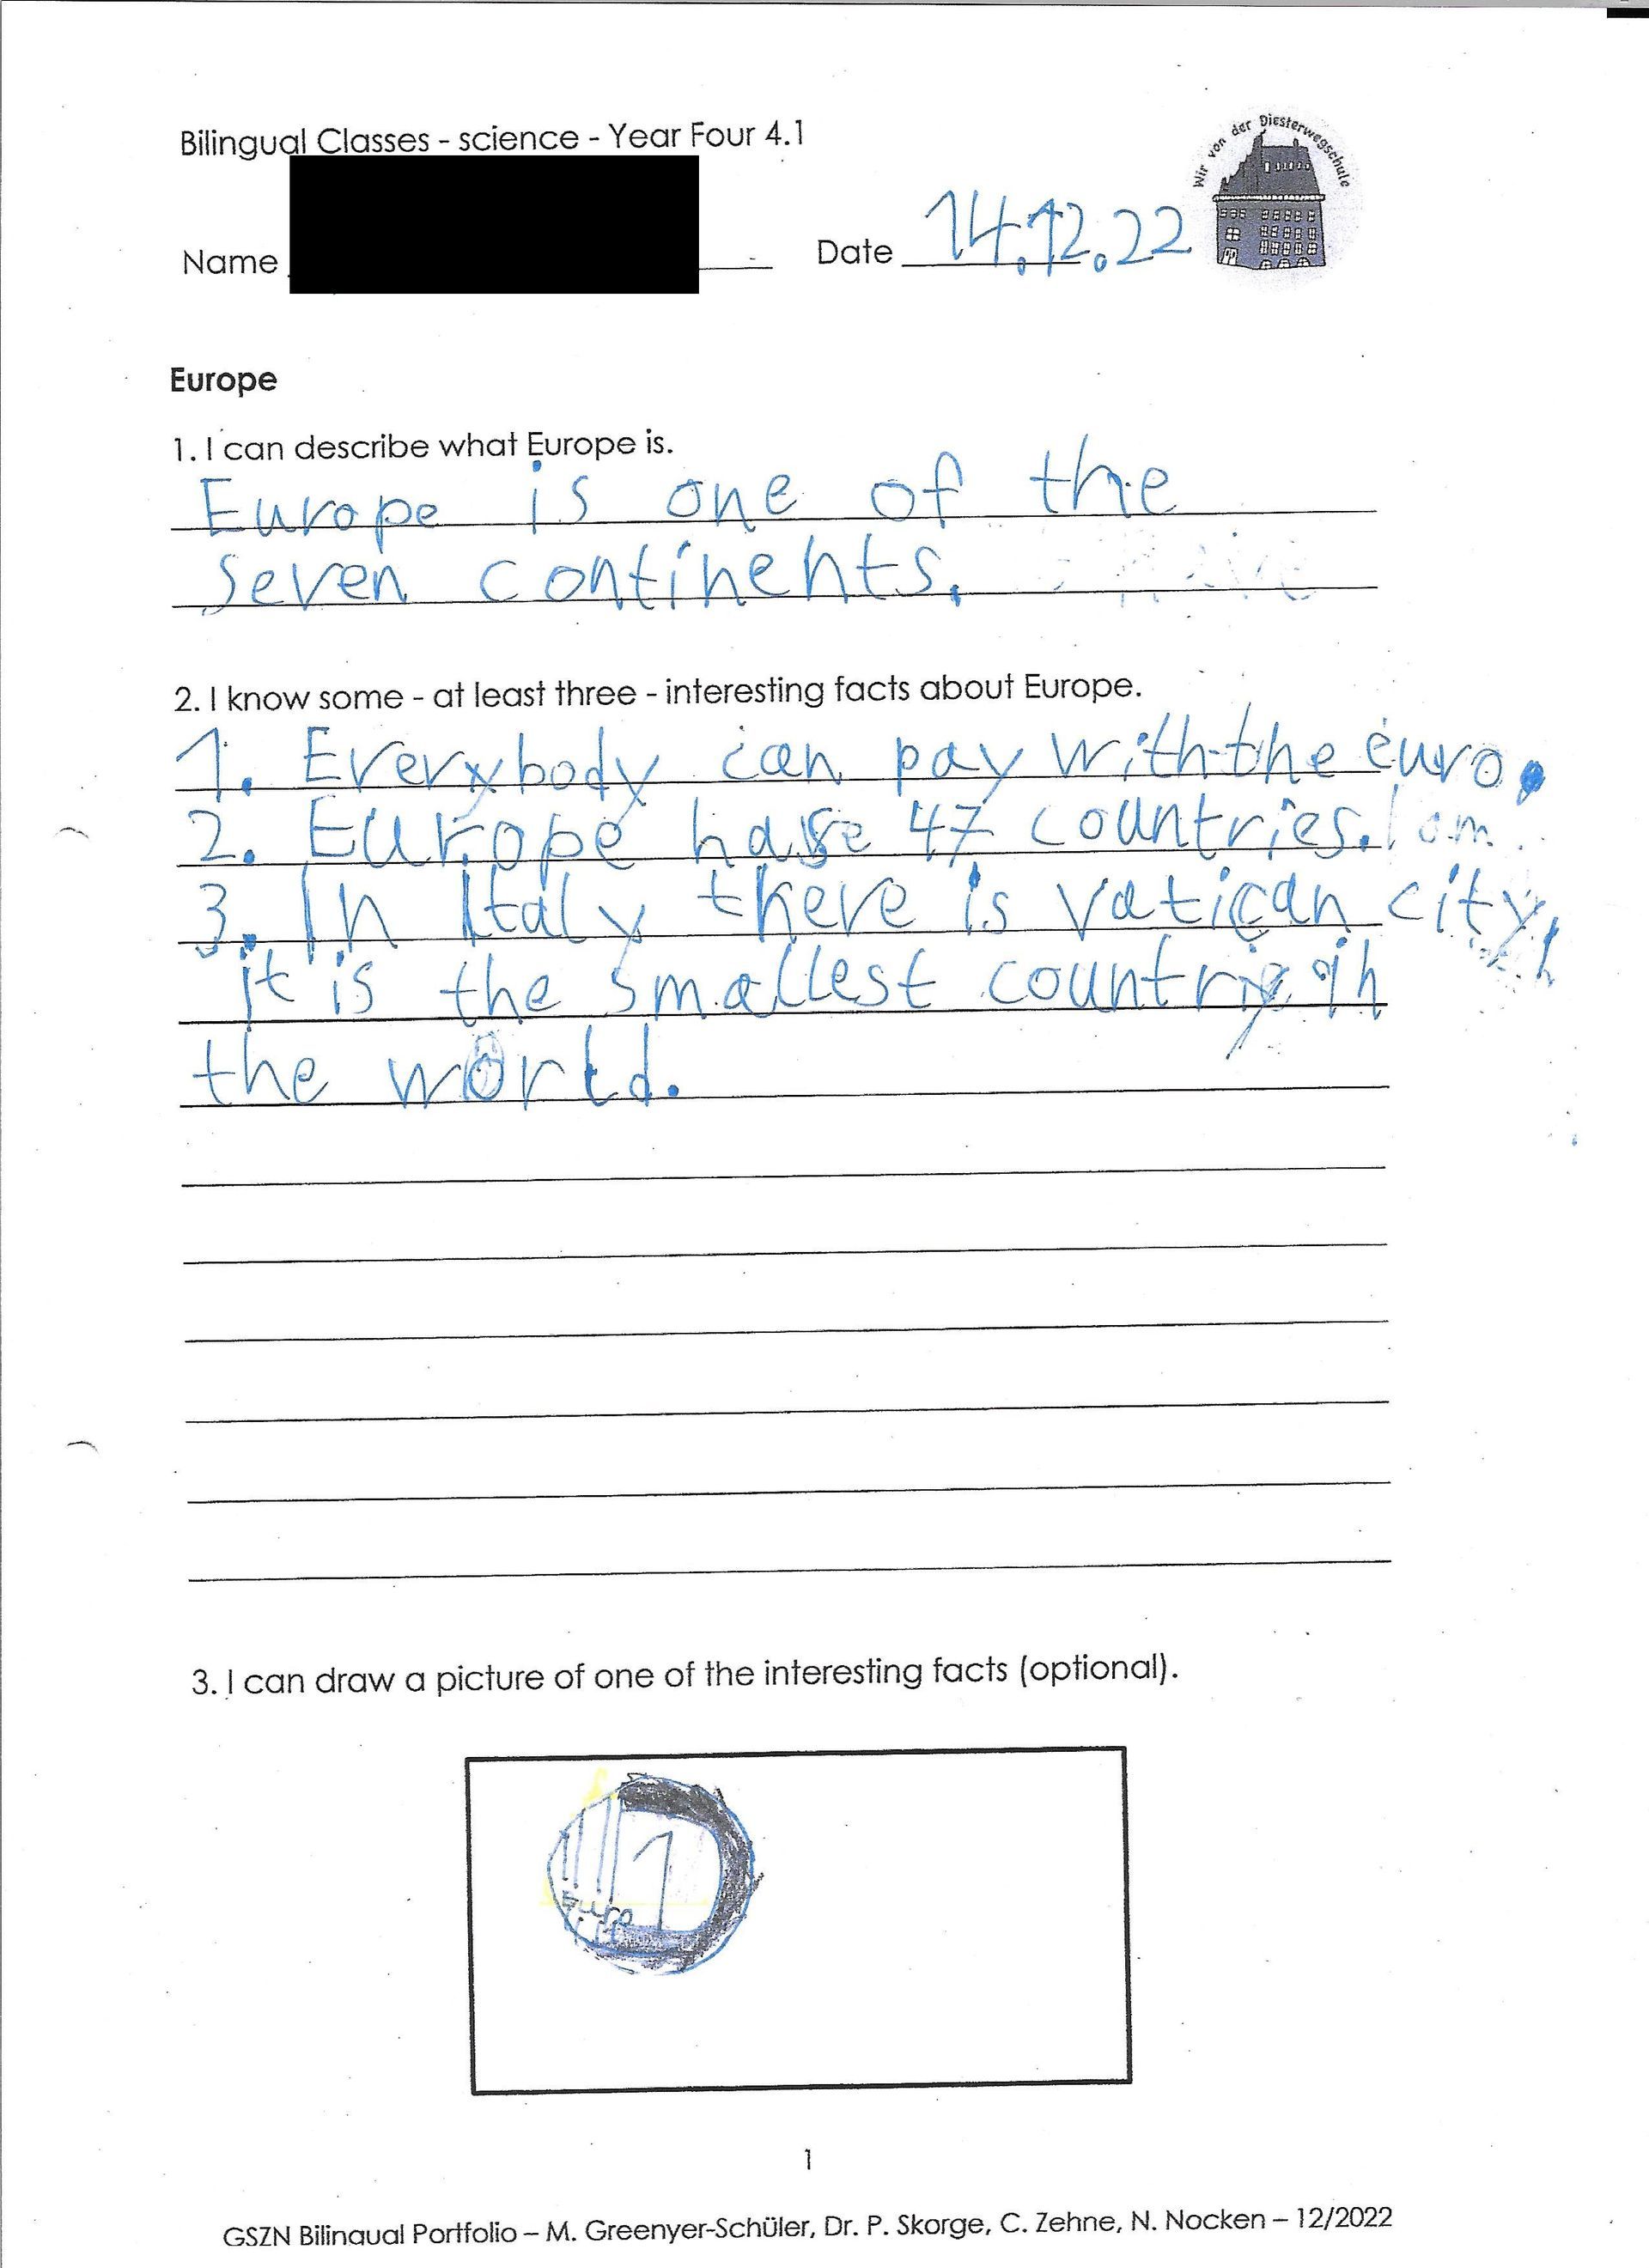 Bilingual Classes - science - Year Four 4.1
Wir von der Diesterwegschule
Name
Date 14.12.22
Europe
1. I can describe what Europe is.
Europe is one of the
seven continents.
2. I know some - at least three - interesting facts about Europe.
1. Everybody can pay with the euro.
2. Europe 47 countries.
3. In Italy there is vatican city,
it is the smallest in
the world.
3. I can draw a picture of one of the interesting facts (optional).
1
Euro
1
GSZN Bilingual Portfolio – M. Greenyer-Schüler, Dr. P. Skorge, C. Zehne, N. Nocken – 12/2022